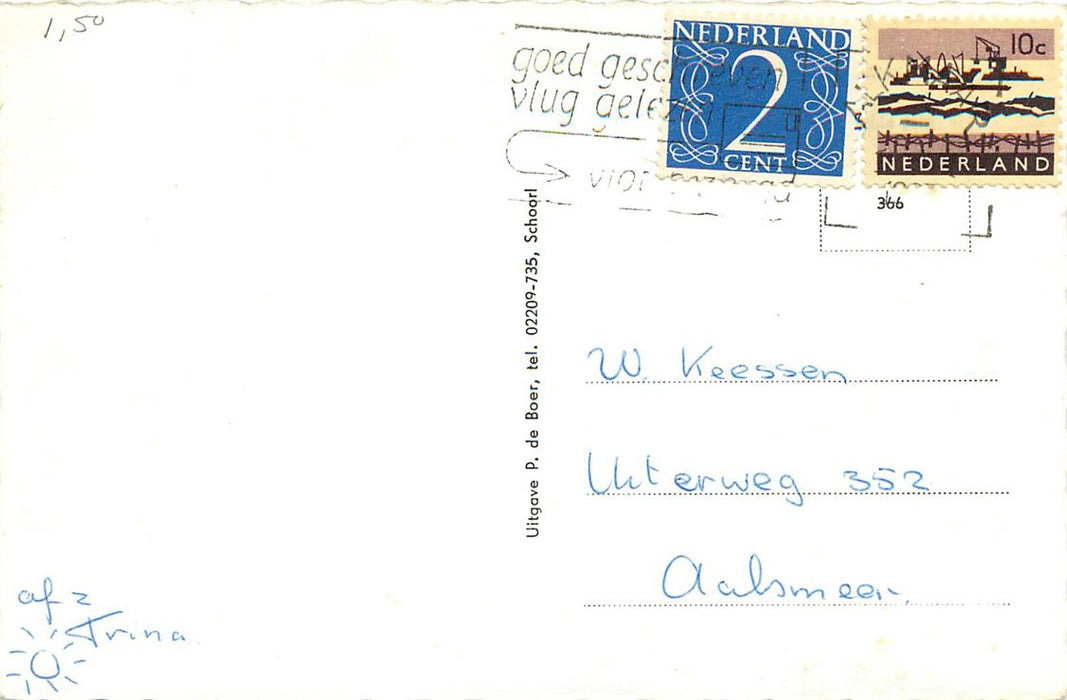 1,50
goed geschreven
vlug gelezen
NEDERLAND
2
CENT
10c
NEDERLAND
ALKMAAR
366
Uitgave P. de Boer, tel. 02209-735, Schoorl
W. Keessen
Uiterweg 352
Aalsmeer.
afz
Trina